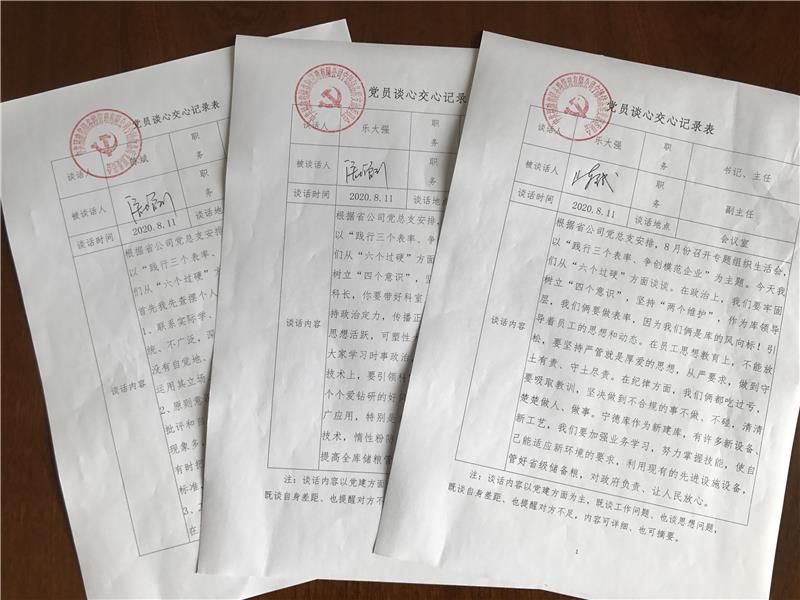 党员谈心交心记录表
谈话人
斌
职
务
被谈话人
职
务
谈话时间
2020.8.11
谈话
谈话内容
根据省公司党总支
以“践行三个表率、
们从“六个过硬”
首先我先查摆个人
1、联系实际学、
统、不广泛，深
没有自觉地、
运用其立场
2、原则意
批评和自
现象多，
有时批
标准，
3、
在
党员谈心交心记录
谈话人
乐大强
职
务
被谈话人
职
务
谈话时间
2020.8.11
谈话
谈话内容
根据省公司党总支安排，
以“践行三个表率、争
们从“六个过硬”方面
树立“四个意识”，坚
科长，你要带好科室
持政治定力，传播正
思想活跃，可塑性大
大家学习时事政治
技术上，要引领科
个个爱钻研的好同
广应用，特别是
技术，惰性粉防
提高全库储粮管
注：谈话内容以党建方面
既谈自身差距、也提醒对方不
党员谈心交心记录表
谈话人
乐大强
职
务
书记、主任
被谈话人
职
务
副主任
谈话时间
2020.8.11
谈话地点
会议室
谈话内容
根据省公司党总支安排，8月份召开专题组织生活会，
以“践行三个表率、争创模范企业”为主题。今天我
们从“六个过硬”方面谈谈。在政治上，我们要牢固
树立“四个意识”，坚持“两个维护”，作为库领导
层，我们俩要做表率，因为我们俩是库的风向标！引
导着员工的思想和动态。在员工思想教育上，不能放
松，要坚持严管就是厚爱的思想，从严要求，做到守
土有责、守土尽责。在纪律方面，我们俩都吃过亏，
要吸取教训，坚决做到不合规的事不做、不碰，清清
楚楚做人、做事。宁德库作为新建库，有许多新设备、
新工艺，我们要加强业务学习，努力掌握技能，使自
己能适应新环境的要求，利用现有的先进设施设备，
管好省级储备粮，对政府负责、让人民放心。
注：谈话内容以党建方面为主，既谈工作问题、也谈思想问题，
既谈自身差距、也提醒对方不足，内容可详细、也可摘要。
1